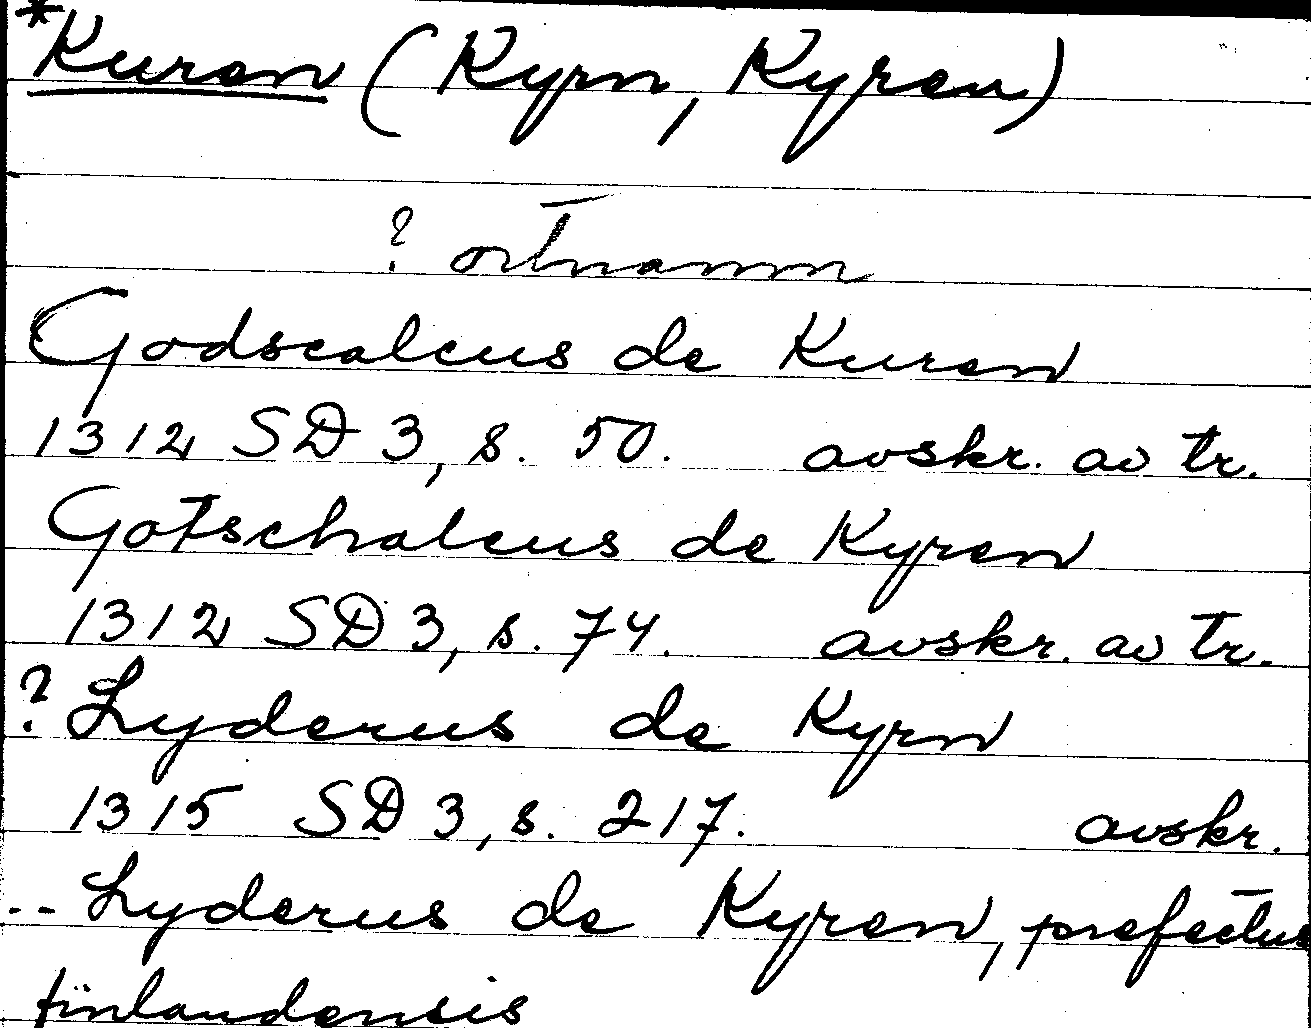 *Kuren (Kyrn, Kyren)
? ortnamn
Godscalcus de Kuren
1312 SD 3, s. 50. avskr. av tr.
Gotschalcus de Kyren
1312 SD 3, s. 74. avskr. av tr.
? Lyderus de Kyrn
1315 SD 3, s. 217. avskr.
-- Lyderus de Kyren, prefectus
finlandensis